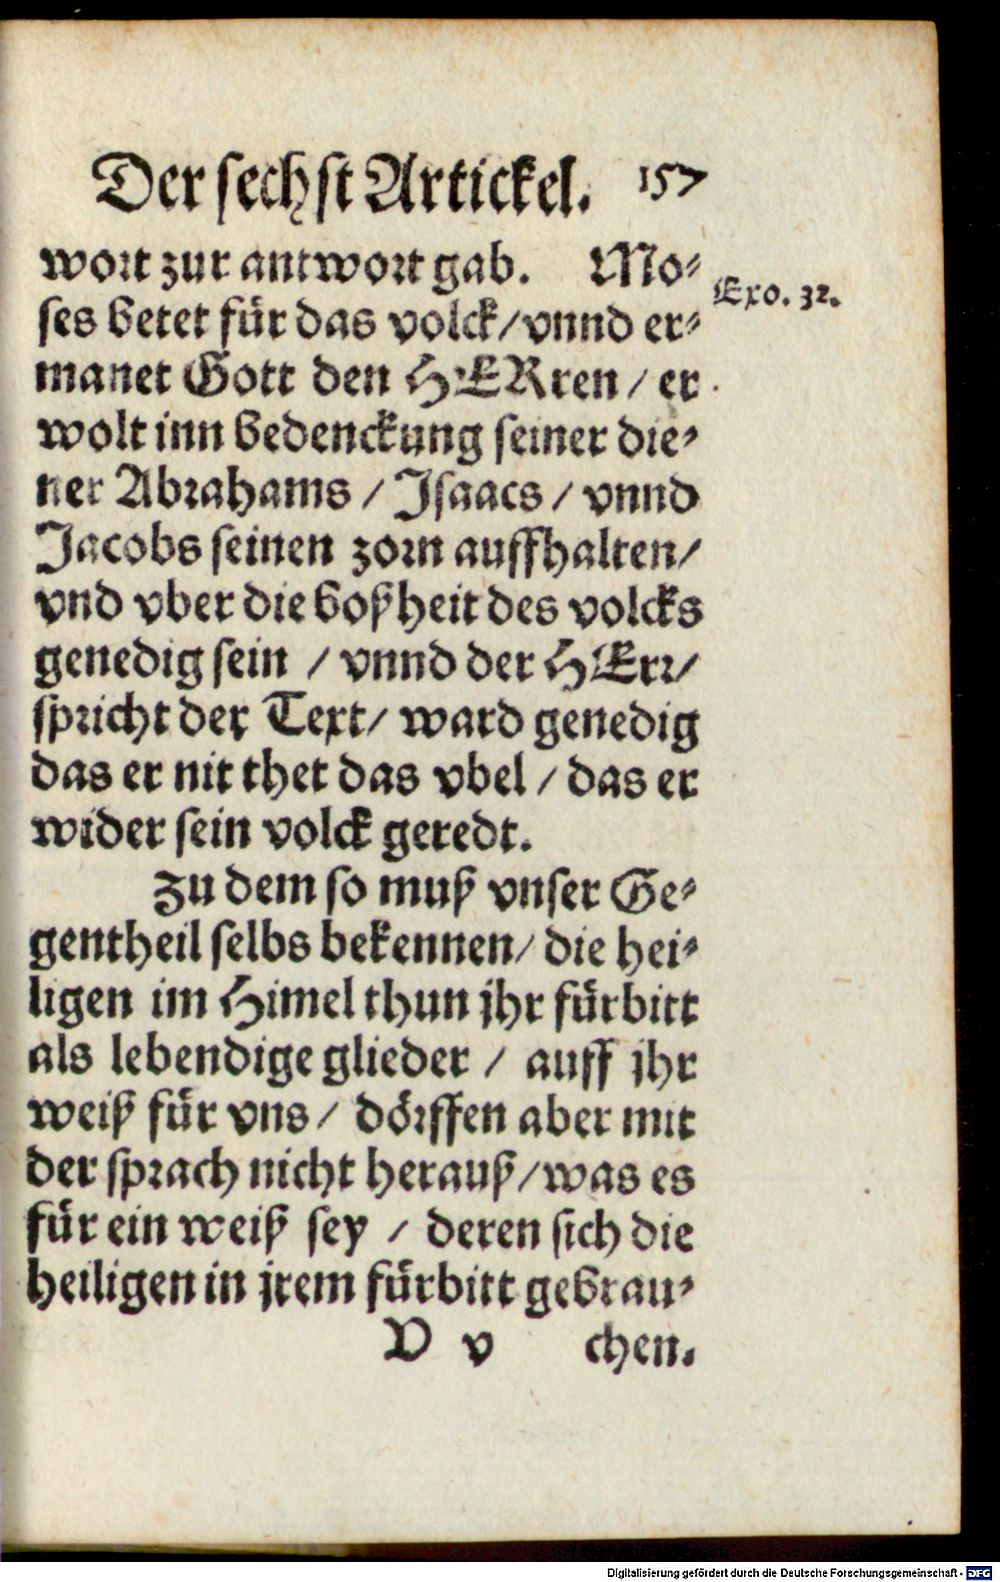 Der sechst Artickel. 157
wort zur antwort gab. Mo-
Exo. 32.
ses betet für das volck/vnnd er-
manet Gott den HERren/ er
wolt inn bedenckung seiner die-
ner Abrahams / Isaacs / vnnd
Jacobs seinen zorn auffhalten/
vnd vber die boßheit des volcks
genedig sein / vnnd der HErr/
spricht der Text/ ward genedig
das er nit thet das vbel / das er
wider sein volck geredt.
Zu dem so muß vnser Ge-
gentheil selbs bekennen/ die hei-
ligen im Himel thun jhr fürbitt
als lebendige glieder / auff jhr
weiß für vns / dörffen aber mit
der sprach nicht herauß/was es
für ein weiß sey / deren sich die
heiligen in jrem fürbitt gebrau-
V v chen.
Digitalisierung gefördert durch die Deutsche Forschungsgemeinschaft - DFG